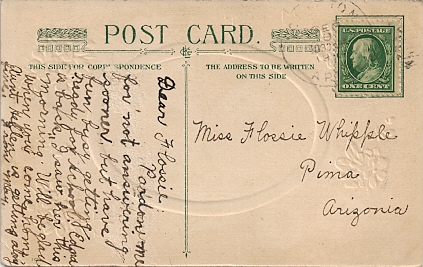 POST CARD.
THIS SIDE FOR CORRESPONDENCE
THE ADDRESS TO BE WRITTEN
ON THIS SIDE
U.S. POSTAGE
ONE CENT
Dear Flossie
Pardon me
for not answering
sooner, but have
been just getting
ready for school
back, I saw
morning. Will be glad
when you come home.
Miss Flossie Whipple
Pima
Arizonia